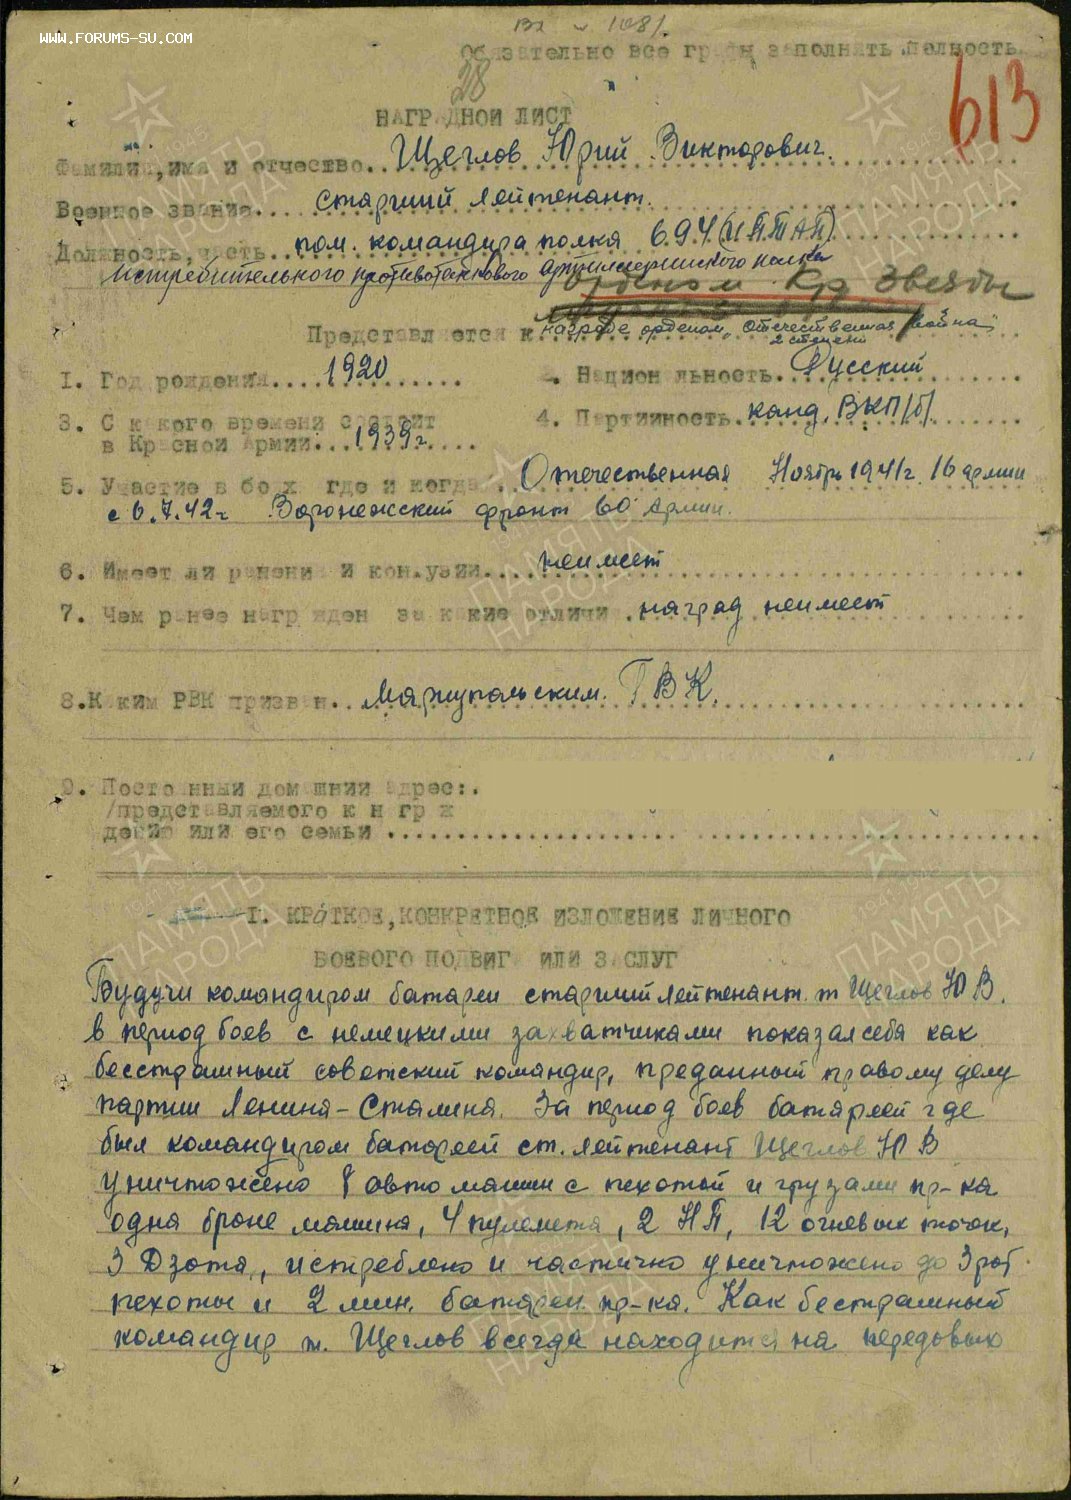 WWW.FORUMS-SU.COM
Обязательно все графы заполнять полность
28
613
НАГРАДНОЙ ЛИСТ
Фамилия, имя и отчество.. Щеглов Юрий Викторович.
Военное звание.... старший лейтенант.
Должность, часть.. пом. командира полка 694 (ИПТАП)
истребительного противотанкового артиллерийского полка
орденом Кр Звезды
Представляется к награде орденом „Отечественная война"
2 степени
1. Год рождения.... 1920
2. Национальность. Русский
3. С какого времени состоит
в Красной Армии... 1939 г.
4. Партийность. канд. ВКП/б/
5. Участие в боях где и когда.. Отечественная Ноябрь 1941 г. 16 армии
с 6.7.42 г Воронежский фронт 60 Армии.
6. Имеет ли ранения и контузии.... неимеет
7. Чем ранее награжден за какие отличи. наград неимеет
8. Каким РВК призван.. Мариупольским. ГВК.
9. Постоянный домашний адрес:.
/представляемого к награж
дению или его семьи ........
I. КРАТКОЕ, КОНКРЕТНОЕ ИЗЛОЖЕНИЕ ЛИЧНОГО
БОЕВОГО ПОДВИГА ИЛИ ЗАСЛУГ
Будучи командиром батареи старший лейтенант т Щеглов Ю В.
в период боев с немецкими захватчиками показал себя как
бесстрашный советский командир, преданный правому делу
партии Ленина-Сталина. За период боев батареей где
был командиром батареей ст. лейтенант Щеглов Ю В
уничтожено 8 автомашин с пехотой и грузами пр-ка
одна броне машина, 4 пулемета, 2 НП, 12 огневых точек,
3 Дзота, истреблено и частично уничтожено до 3 рот
пехоты и 2 мин. батареи пр-ка. Как бестрашный
командир т. Щеглов всегда находится на передовых
ПАМЯТЬ НАРОДА